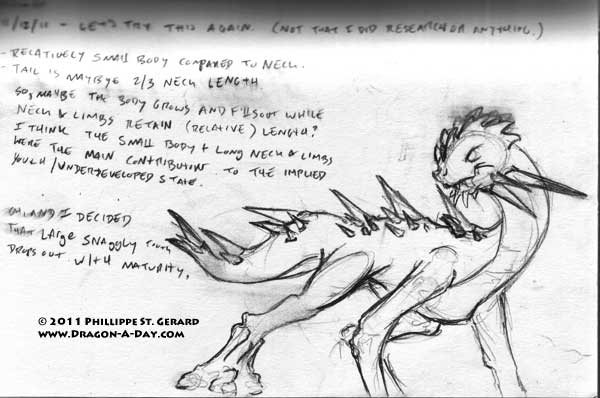 11/12/11 - LET'S TRY THIS AGAIN. (NOT THAT I DID RESEARCH OR ANYTHING.)
- RELATIVELY SMALL BODY COMPARED TO NECK.
- TAIL IS MAYBYE 2/3 NECK LENGTH.
SO, MAYBE THE BODY GROWS AND FILLS OUT WHILE
NECK & LIMBS RETAIN (RELATIVE) LENGTH?
I THINK THE SMALL BODY + LONG NECK & LIMBS
WERE THE MAIN CONTRIBUTION TO THE IMPLIED
YOUTH/UNDERDEVELOPED STATE.
OH, AND I DECIDED
THAT LARGE SNAGGLY TOOTH
DROPS OUT WITH MATURITY.
© 2011 PHILLIPPE ST. GERARD
WWW.DRAGON-A-DAY.COM